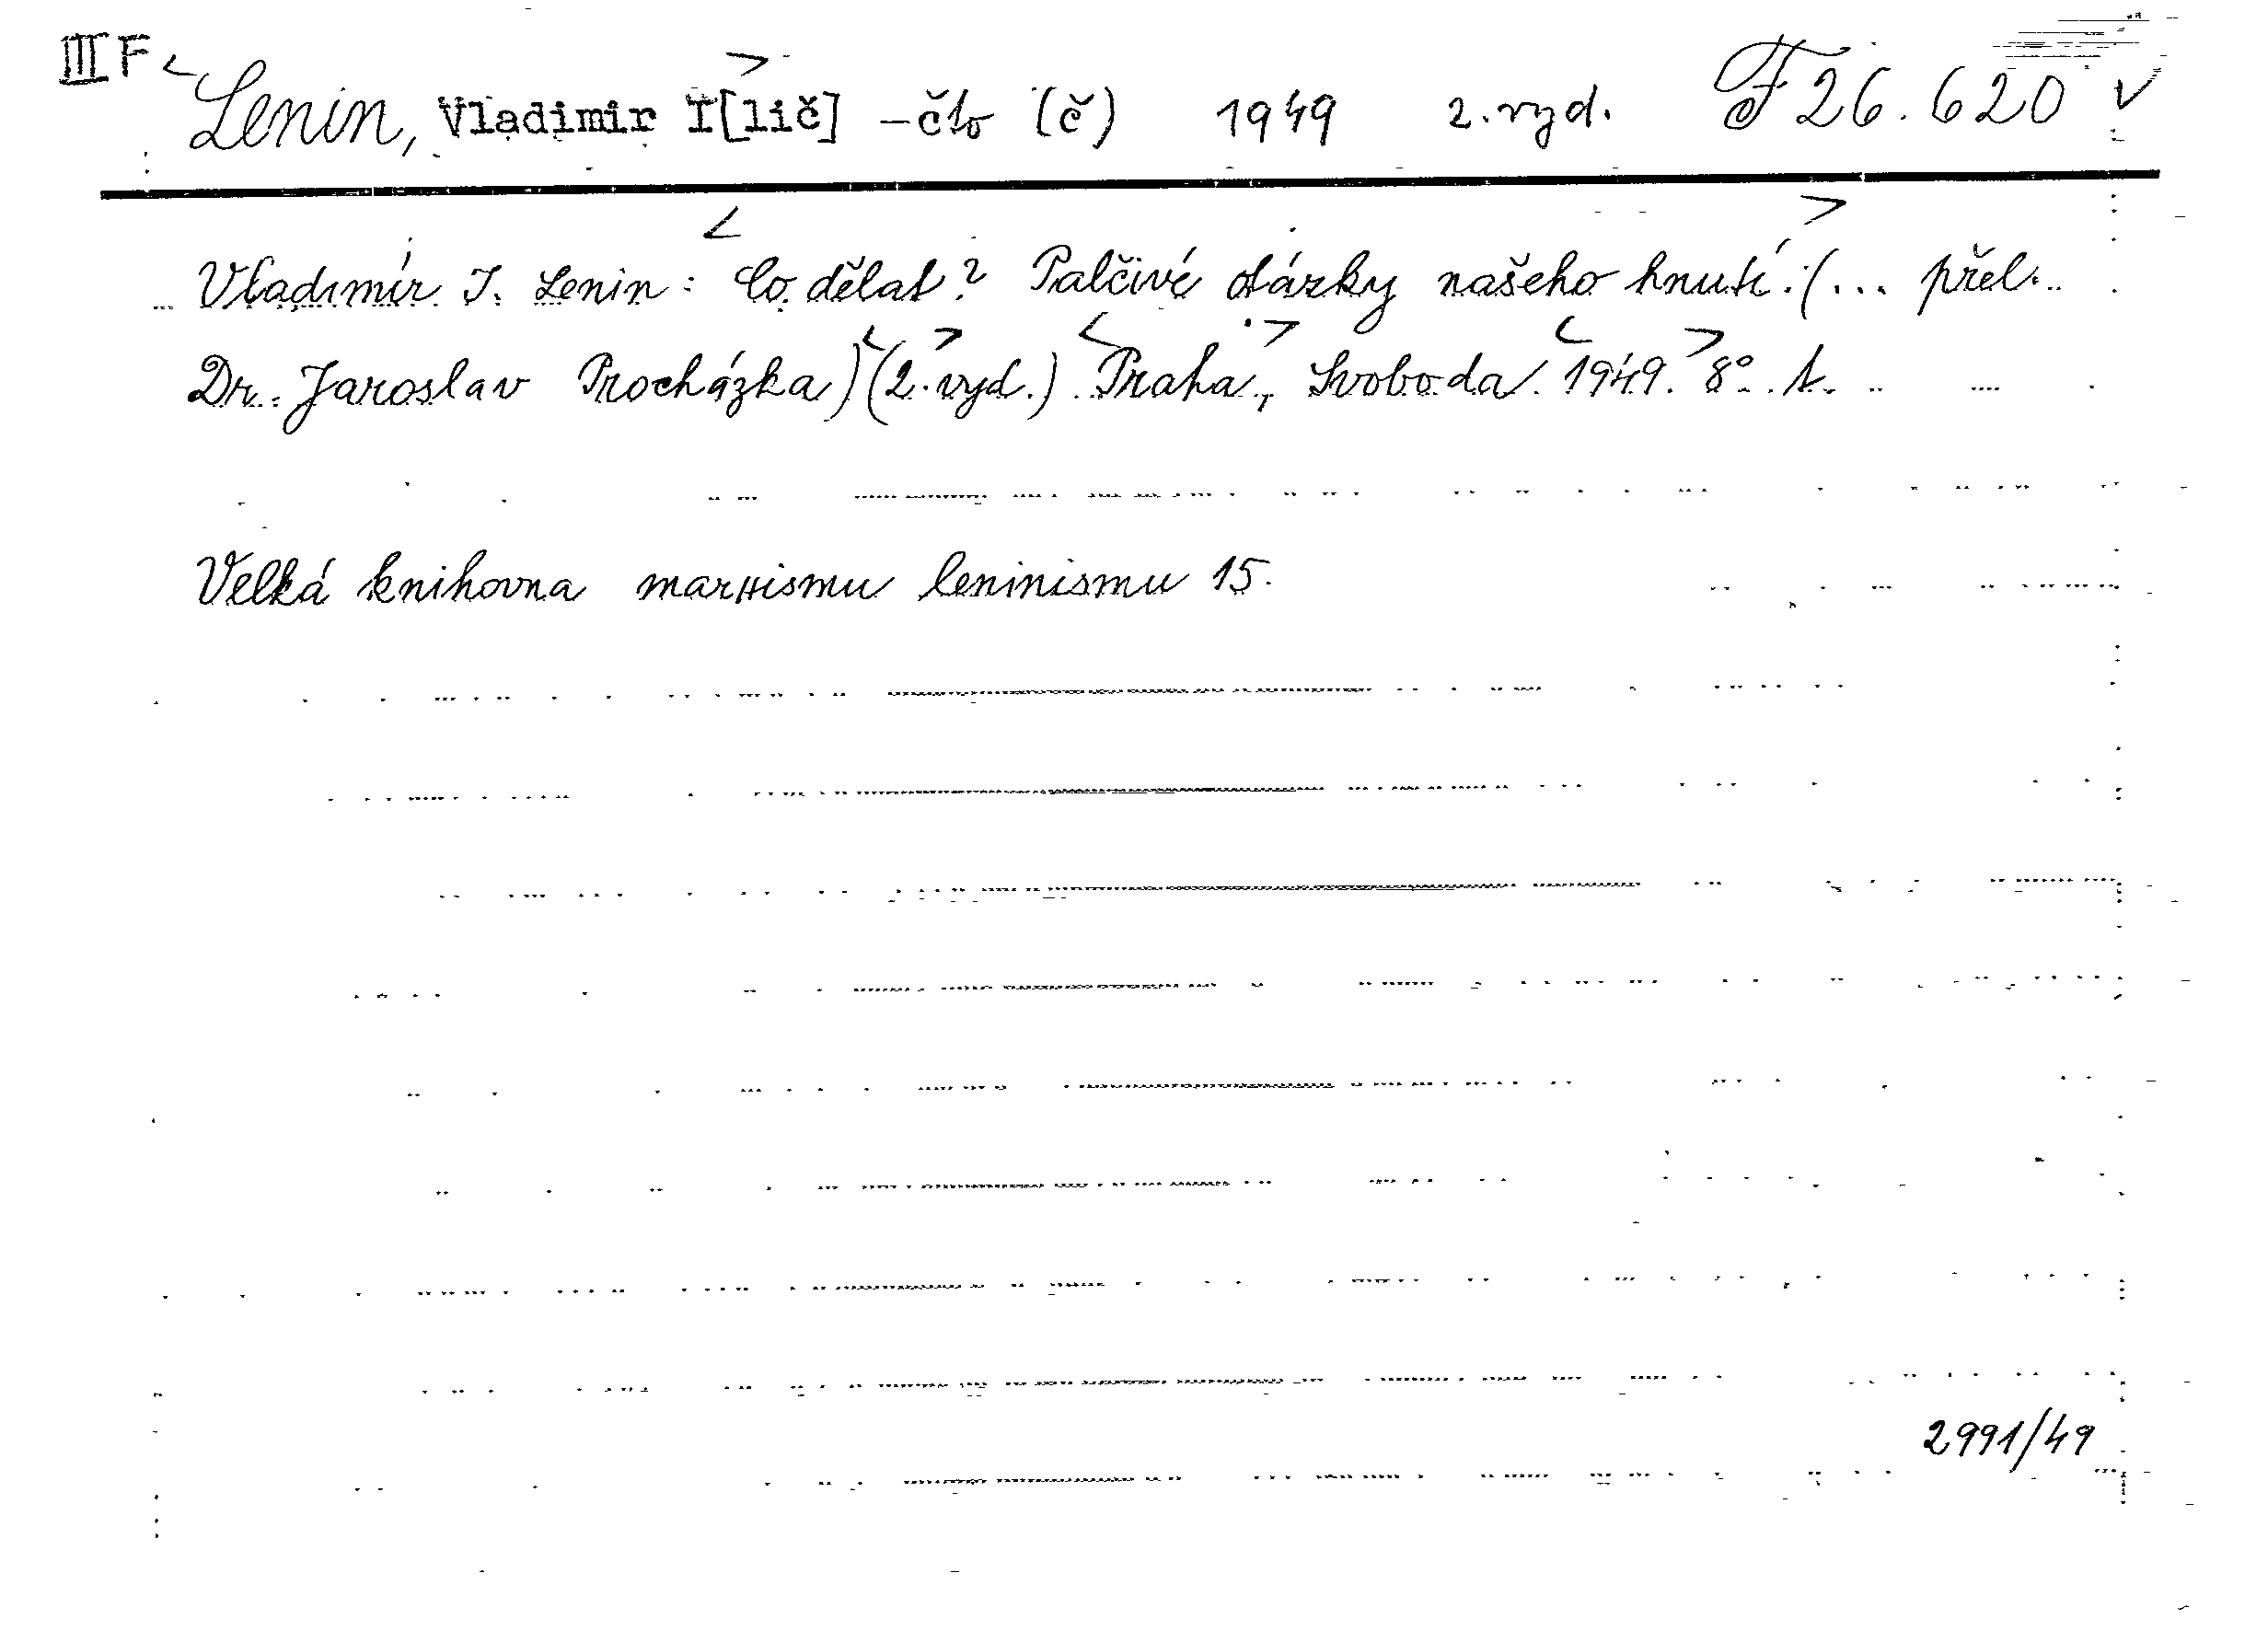 III F < Lenin, Vladimir I[lič] > - čto (č) 1949 2. vyd. F 26.620 v
Vladimír I. Lenin: < Co dělat? Palčivé otázky našeho hnutí. > (... přel.
Dr. Jaroslav Procházka) < (2. vyd.) > < Praha, > Svoboda < 1949. > 8°.
Velká knihovna marxismu leninismu 15.
2991/49